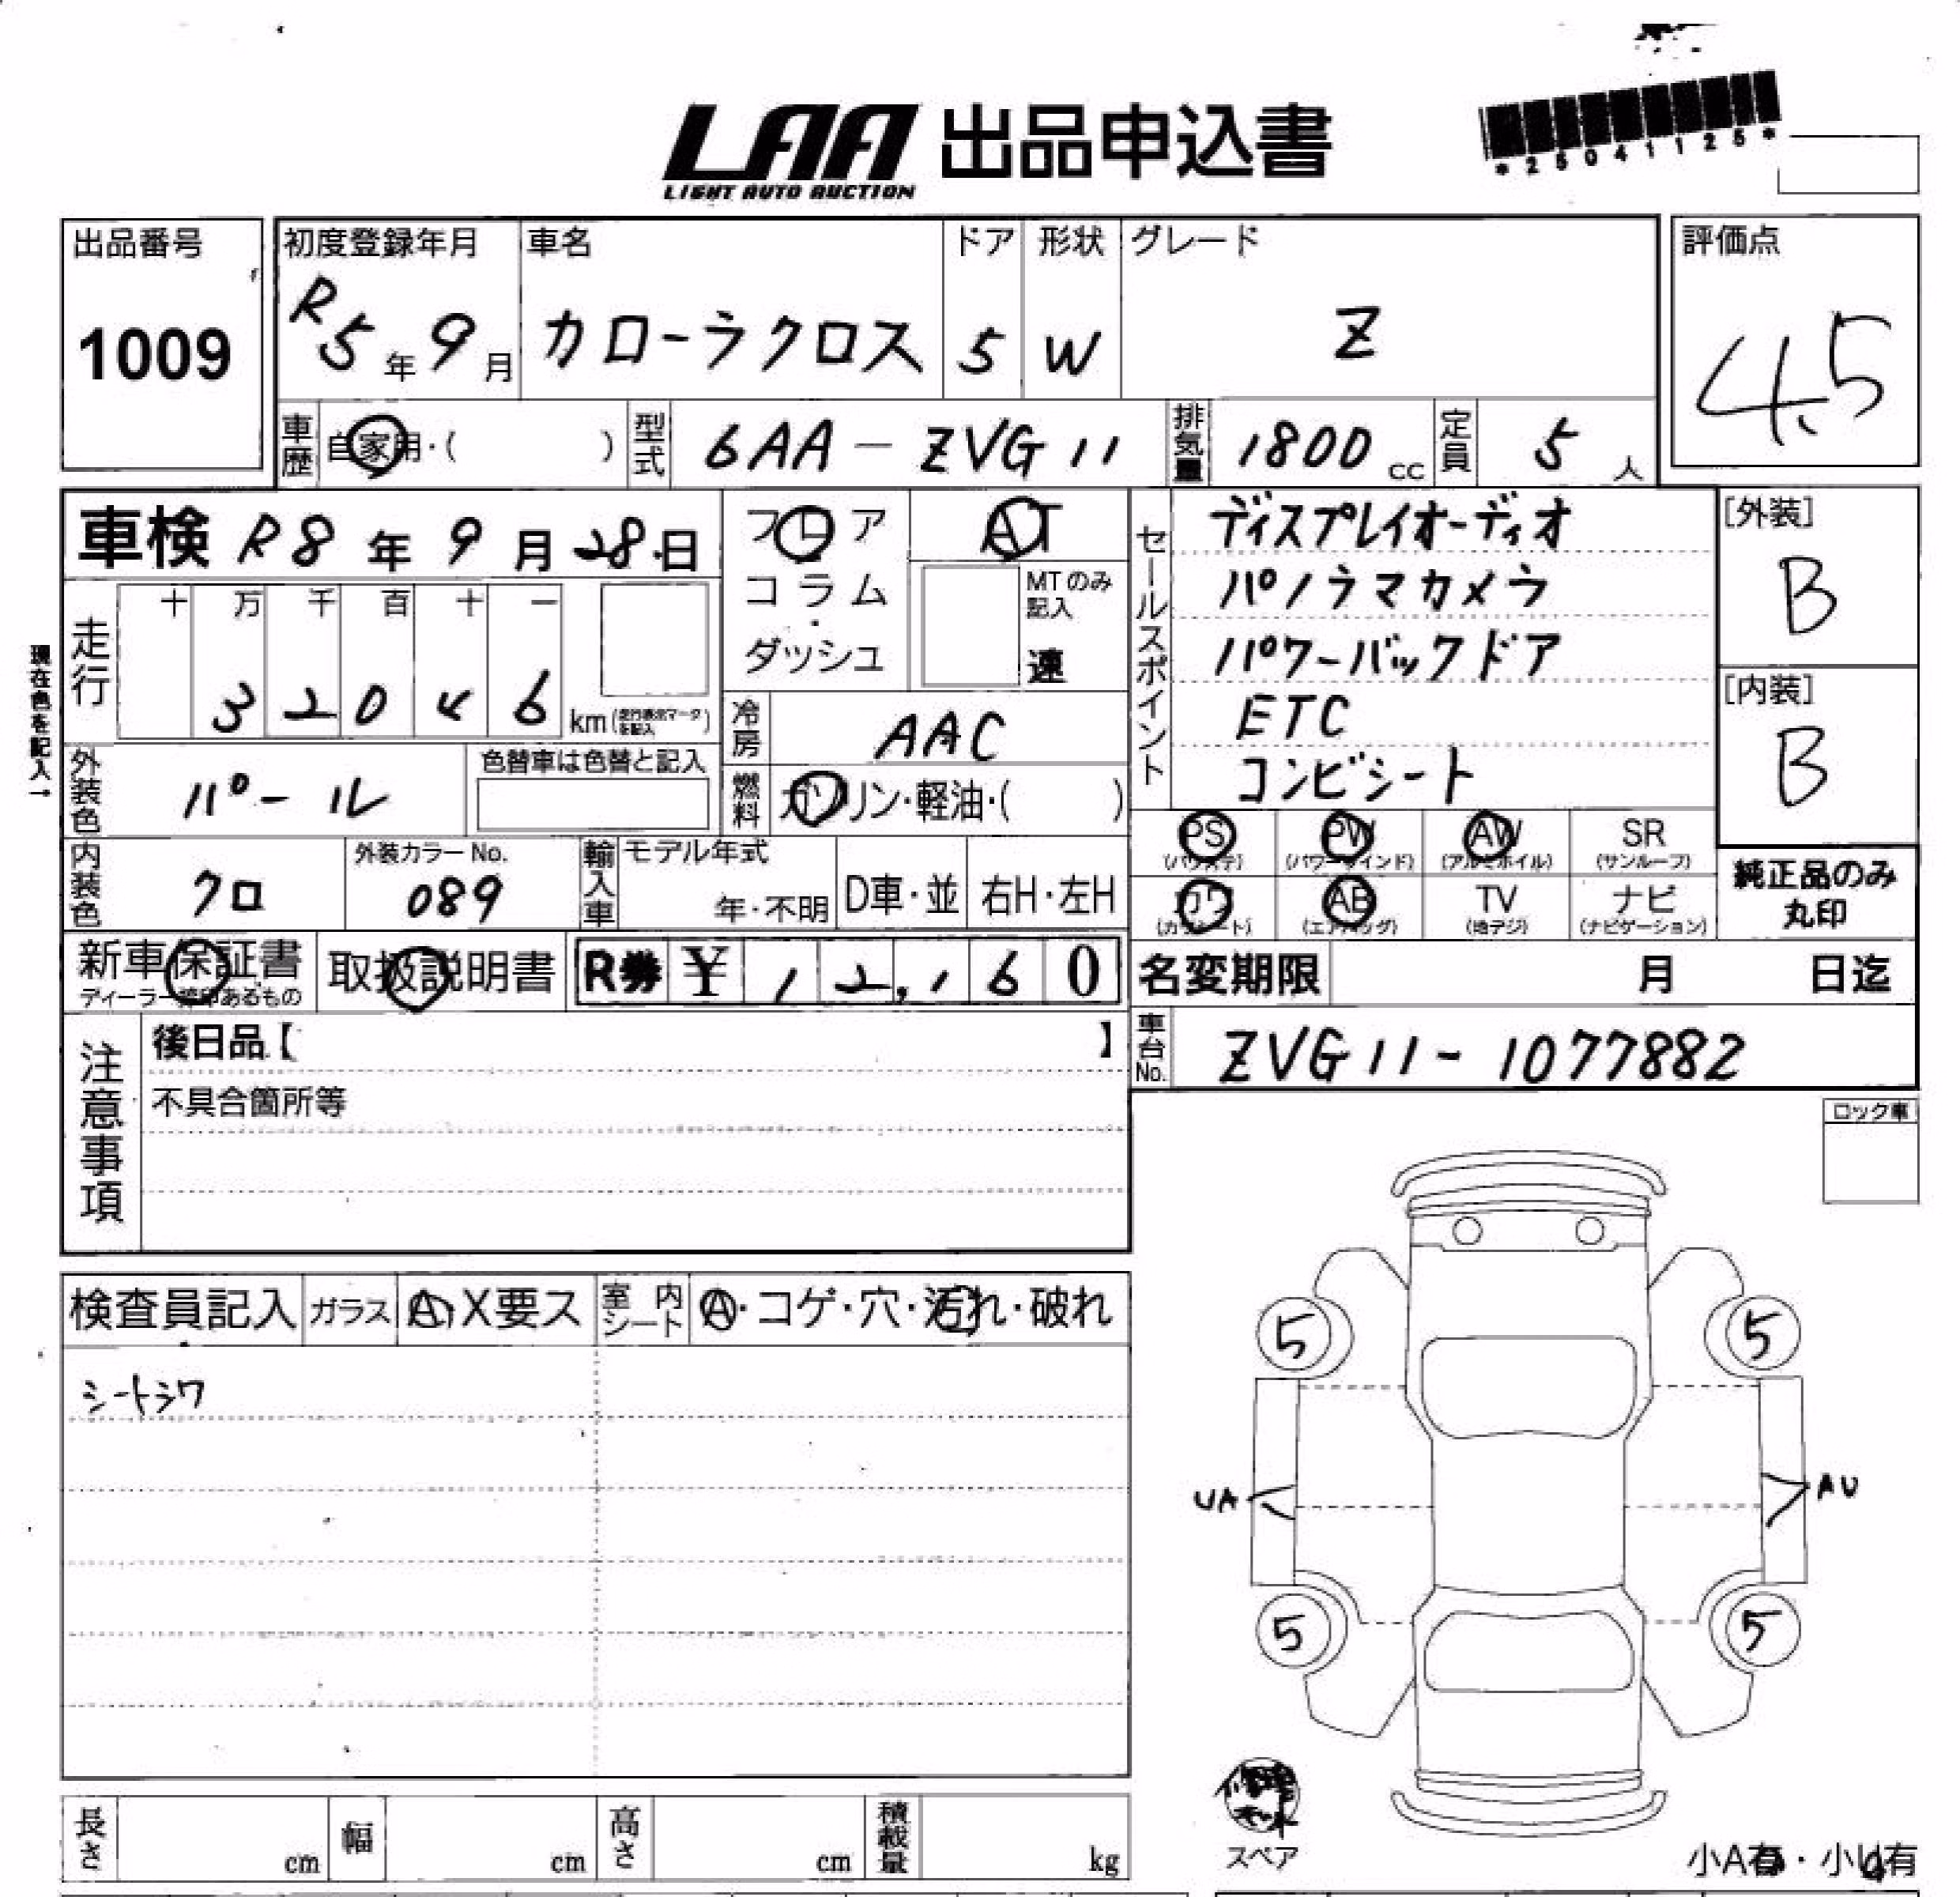 LAA 出品申込書
LIGHT AUTO AUCTION
*25041125*
出品番号
1009
初度登録年月
R5年9月
車名
カローラクロス
ドア
5
形状
W
グレード
Z
評価点
4.5
車歴
自家用・( )
型式
6AA-ZVG11
排気量
1800 cc
定員
5 人
現在色を記入→
車検 R8年9月28日
フロア
コラム
ダッシュ
AT
MTのみ記入
速
走行
十 万 千 百 十 一
3 2 0 4 6 km (走行表示マークを記入)
冷房
AAC
燃料
ガソリン・軽油・( )
外装色
パール
色替車は色替と記入
内装色
クロ
外装カラーNo.
089
輸入車
モデル年式
年・不明
D車・並
右H・左H
セールスポイント
ディスプレイオーディオ
パノラマカメラ
パワーバックドア
ETC
コンビシート
[外装]
B
[内装]
B
PS (パワステ)
PW (パワーウインド)
AW (アルミホイル)
SR (サンルーフ)
カワ (カワシート)
AB (エアバッグ)
TV (地デジ)
ナビ (ナビゲーション)
純正品のみ
丸印
新車保証書
ディーラー捺印あるもの
取扱説明書
R券 ¥12,160
名変期限 月 日迄
車台No.
ZVG11-1077882
注意事項
後日品【 】
不具合箇所等
ロック車
検査員記入
ガラス
A・X要ス
室内シート
A・コゲ・穴・汚れ・破れ
シートシワ
5
5
UA
AU
5
5
スペア
長さ cm
幅 cm
高さ cm
積載量 kg
小A有・小U有